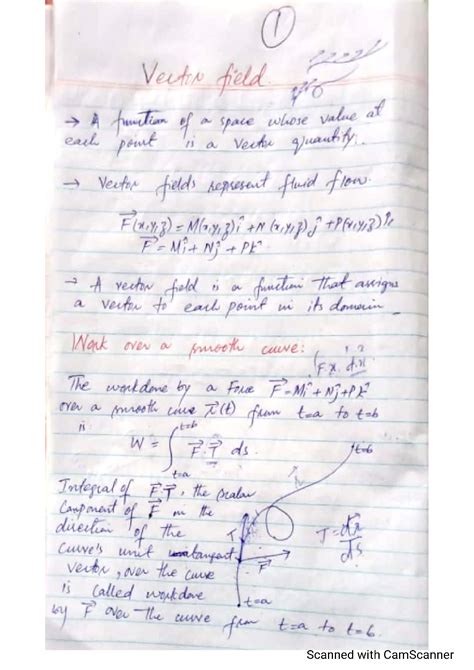 1
Vector field.
→ A function of a space whose value at
each point is a vector quantity.
→ Vector fields represent fluid flow.
F⃗(x,y,z) = M(x,y,z)î + N(x,y,z)ĵ + P(x,y,z)k̂
F⃗ = Mî + Nĵ + Pk̂
→ A vector field is a function that assigns
a vector to each point in its domain
Work over a smooth curve:
The workdone by a Force F⃗ = Mî + Nĵ + Pk̂
over a smooth curve r⃗(t) from t=a to t=b
is
W = ∫ t=a t=b F⃗.T⃗ ds.
t=b
Integral of F⃗.T⃗, the scalar
Component of F⃗ in the
direction of the
T
T = dr⃗/ds
curve's unit tangent
F⃗
vector, over the curve
is called workdone
t=a
by F⃗ over the curve from t=a to t=b.
Scanned with CamScanner